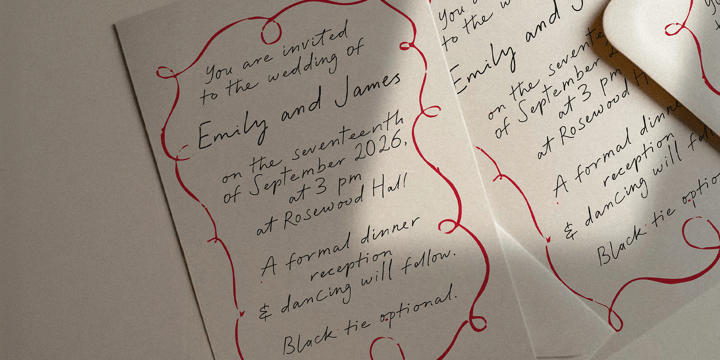 You are invited
to the wedding of
Emily and James
on the seventeenth
of September 2026,
at 3 pm
at Rosewood Hall
A formal dinner
reception
& dancing will follow.
Black tie optional.
You
to the w
Emily and J
on the sevente
of September 2
at 3 pm
at Rosewood H
A formal dinne
reception
& dancing will fol
Black tie optio